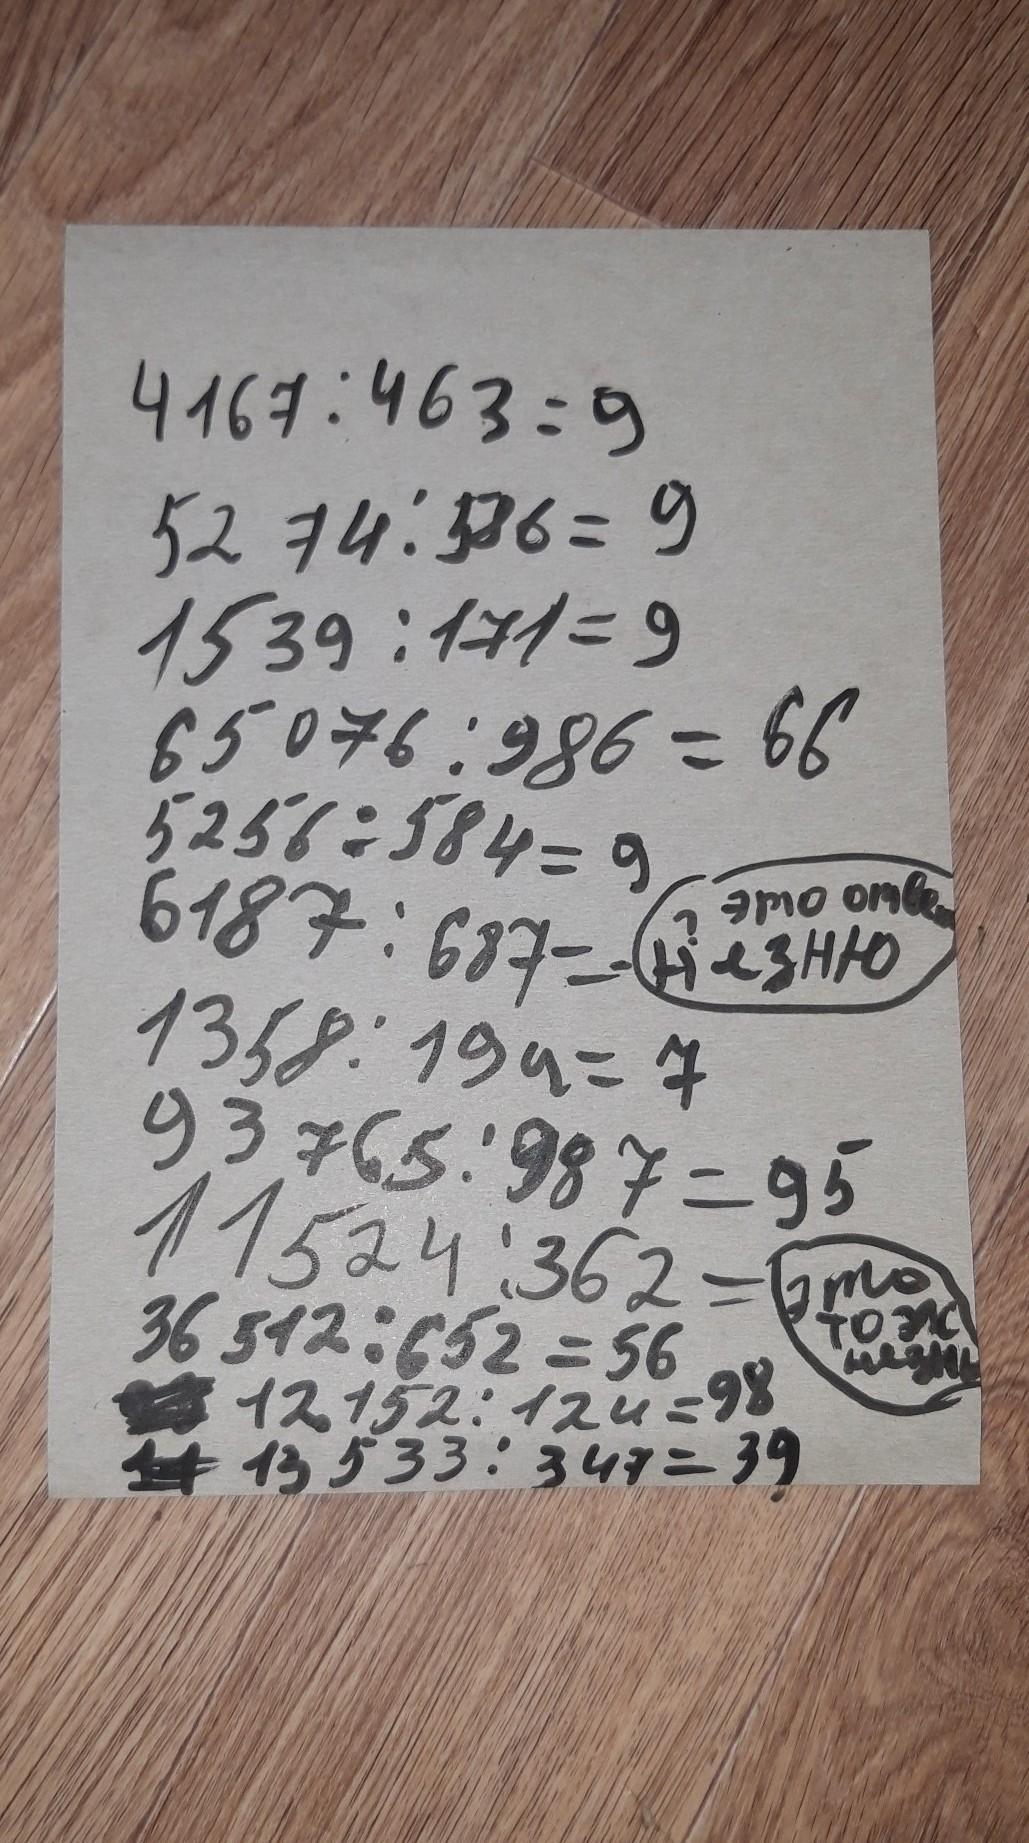 4167:463=9
5274:586=9
1539:171=9
65076:986=66
5256:584=9
6187:687=- это ответ
я не знаю
1358:194=7
93765:987=95
11524:362= это
тоже
не зн
36512:652=56
12152:124=98
13533:347=39